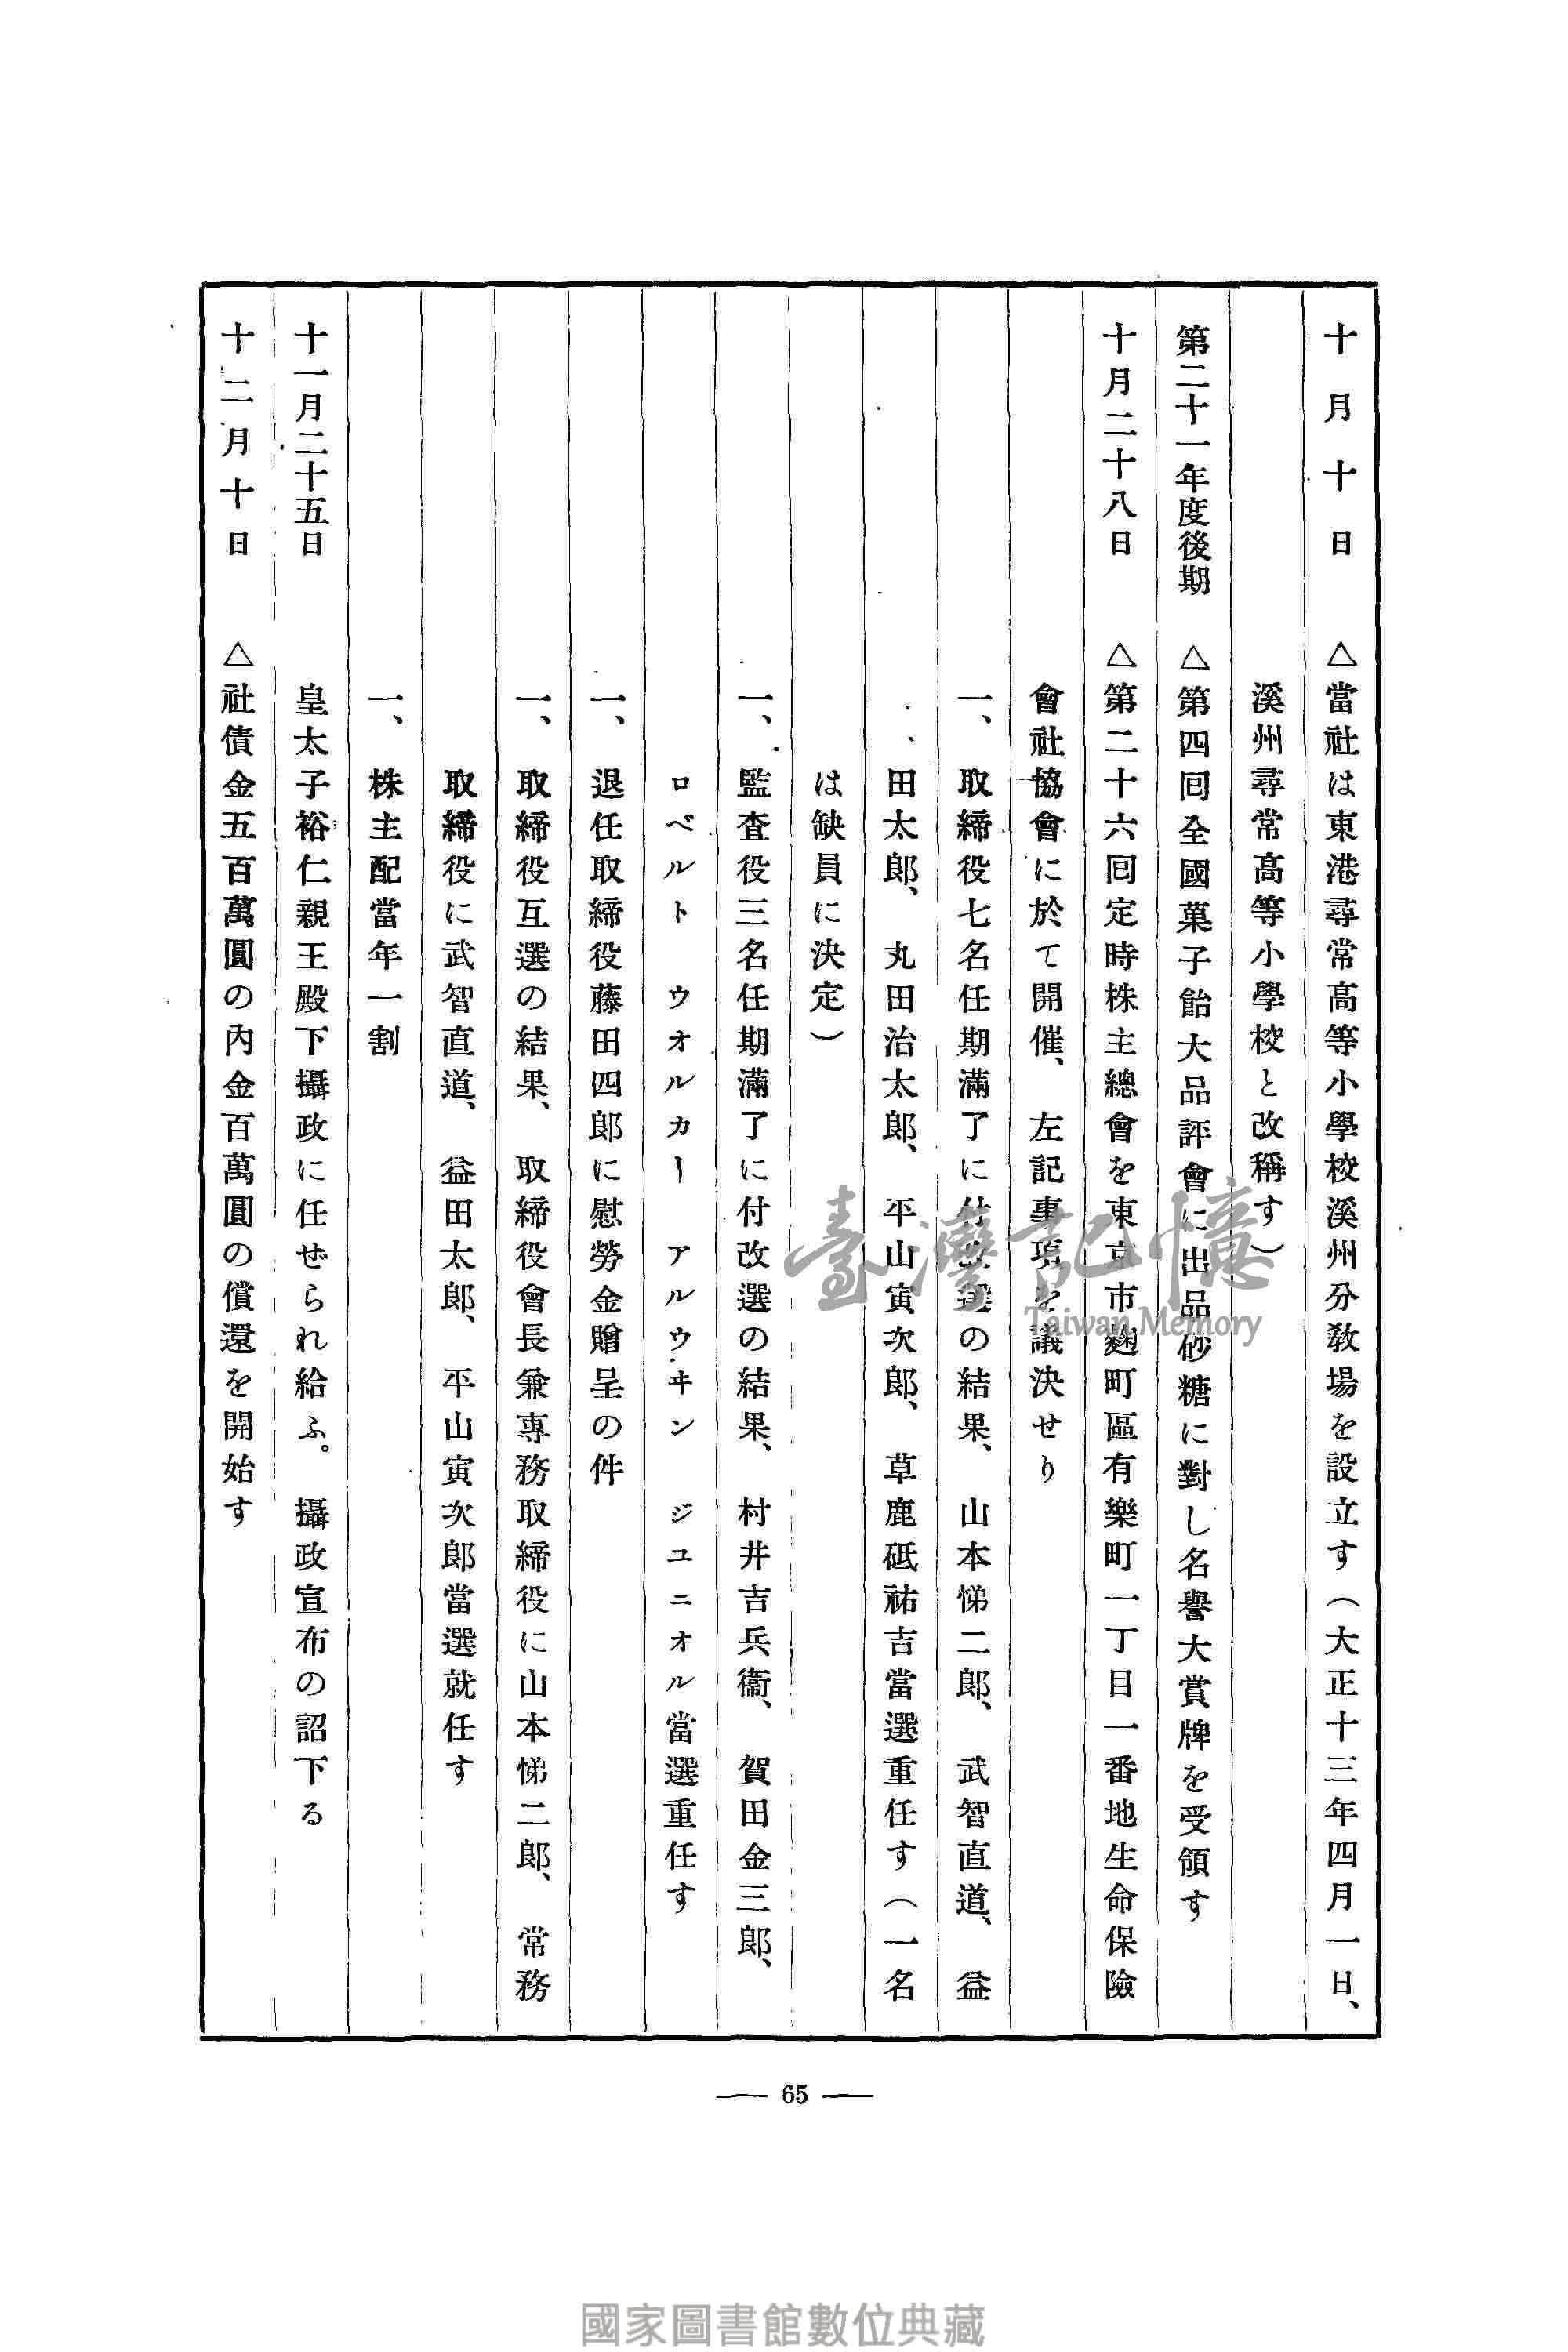 十月十日　△當社は東港尋常高等小學校溪州分敎場を設立す（大正十三年四月一日、
溪州尋常高等小學校と改稱す）
第二十一年度後期　△第四回全國菓子飴大品評會に出品砂糖に對し名譽大賞牌を受領す
十月二十八日　△第二十六回定時株主總會を東京市麴町區有樂町一丁目一番地生命保險
會社協會に於て開催、左記事項を議決せり
一、取締役七名任期滿了に付改選の結果、山本悌二郎、武智直道、益
田太郎、丸田治太郎、平山寅次郎、草鹿砥祐吉當選重任す（一名
は缺員に決定）
一、監査役三名任期滿了に付改選の結果、村井吉兵衞、賀田金三郎、
ロベルト　ウオルカー　アルウヰン　ジユニオル當選重任す
一、退任取締役藤田四郎に慰勞金贈呈の件
一、取締役互選の結果、取締役會長兼專務取締役に山本悌二郎、常務
取締役に武智直道、益田太郎、平山寅次郎當選就任す
一、株主配當年一割
十一月二十五日　皇太子裕仁親王殿下攝政に任ぜられ給ふ。攝政宣布の詔下る
十二月十日　△社債金五百萬圓の內金百萬圓の償還を開始す
65
臺灣記憶
Taiwan Memory
國家圖書館數位典藏